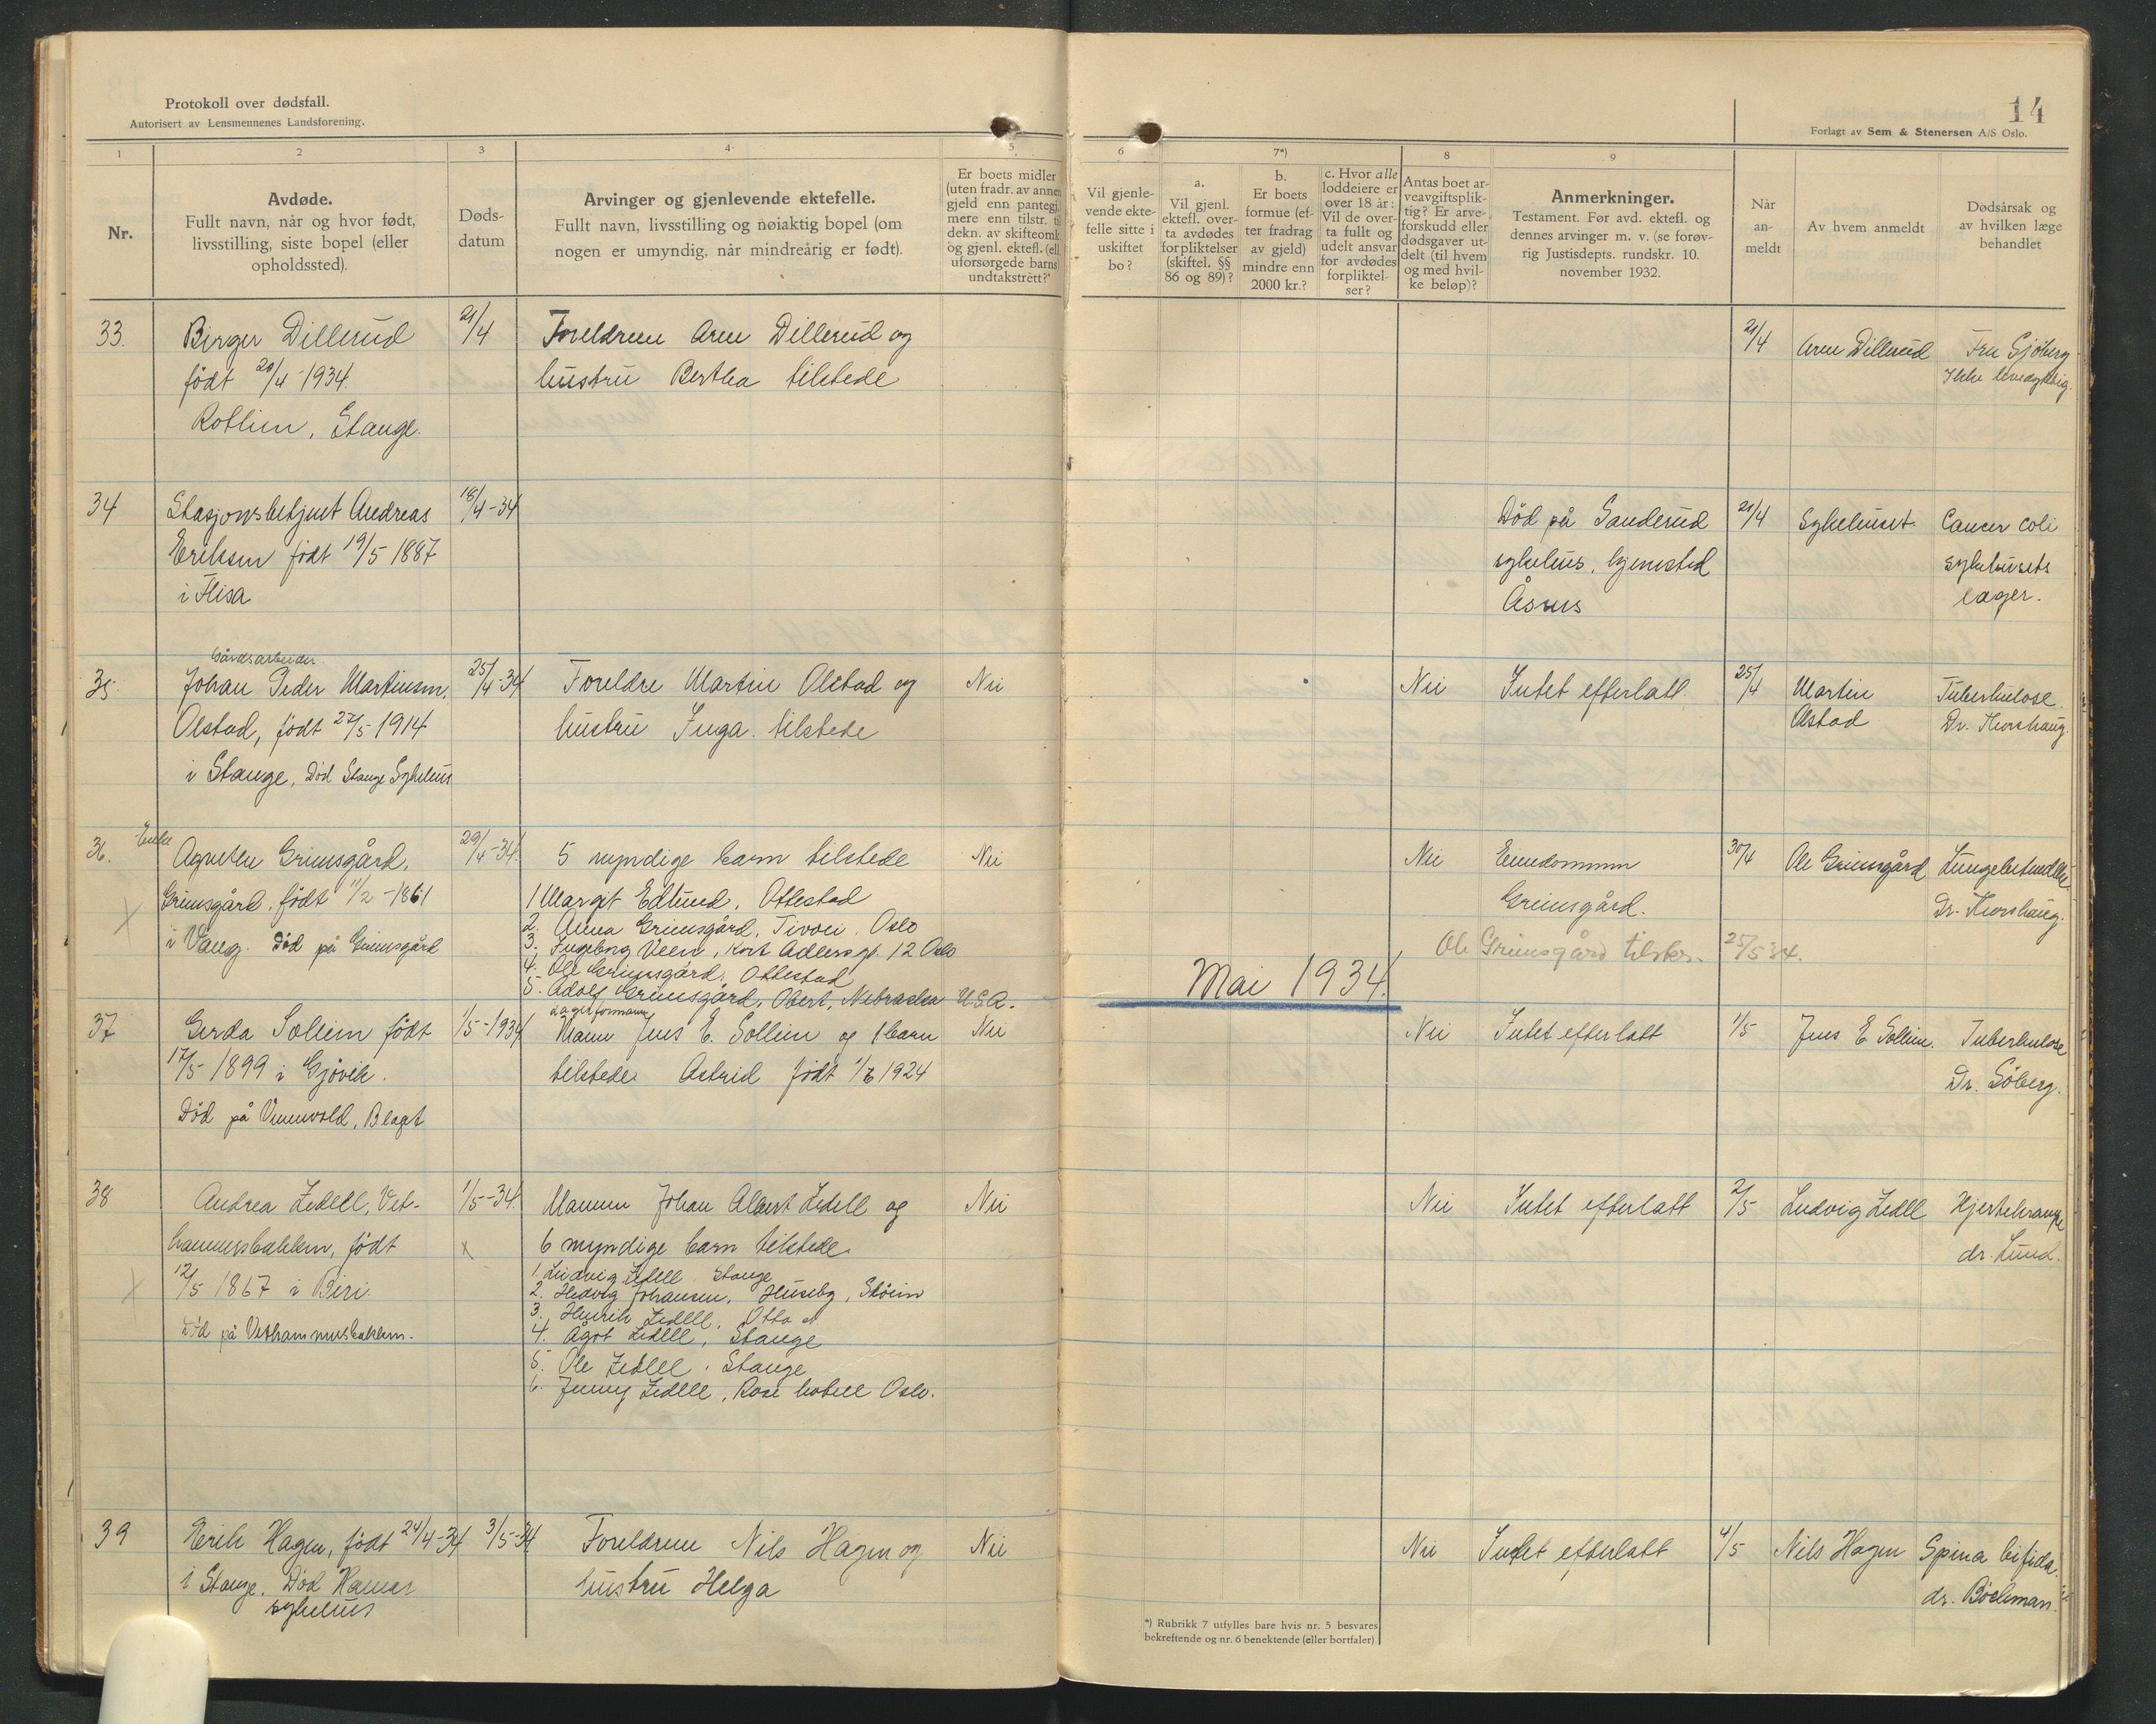 Protokoll over dødsfall.
Autorisert av Lensmennenes Landsforening.
14
Forlagt av Sem & Stenersen A/S Oslo.
1 2 3 4 5 6 7*) 8 9
Nr.
Avdøde.
Fullt navn, når og hvor født,
livsstilling, siste bopel (eller
opholdssted).
Døds-
datum
Arvinger og gjenlevende ektefelle.
Fullt navn, livsstilling og nøiaktig bopel (om
nogen er umyndig, når mindreårig er født).
Er boets midler
(uten fradr. av annen
gjeld enn pantegj.)
mere enn tilstr. til
dekn. av skifteomk.
og gjenl. ektefl. (ell.
uforsørgede barns)
undtaksrett?
Vil gjenle-
vende ekte-
felle sitte i
uskiftet
bo?
a.
Vil gjenl.
ektefl. over-
ta avdødes
forpliktelser
(skiftel. §§
86 og 89)?
b.
Er boets
formue (ef-
ter fradrag
av gjeld)
mindre enn
2000 kr.?
c. Hvor alle
loddeiere er
over 18 år:
Vil de over-
ta fullt og
udelt ansvar
for avdødes
forpliktel-
ser?
Antas boet ar-
veavgiftsplik-
tig? Er arve-
forskudd eller
dødsgaver ut-
delt (til hvem
og med hvil-
ke beløp)?
Anmerkninger.
Testament. Før avd. ektefl. og
dennes arvinger m. v. (se forøv-
rig Justisdepts. rundskr. 10.
november 1932.
Når
an-
meldt
Av hvem anmeldt
Dødsårsak og
av hvilken læge
behandlet
33. Birger Dillerud
født 20/4 1934.
Rotlien, Stange.
21/4
Foreldrene Arne Dillerud og
hustru Bertha tilstede
21/4
Arne Dillerud
Fru Sjøberg
Ikke levedyktig.
34 Stasjonsbetjent Andreas
Eriksen født 19/5 1887
i Flisa
18/4-34
Død på Sanderud
sykehus, hjemsted
Åsnes
21/4
Sykehuset.
Cancer coli
sykehusets
læger.
35. Gårdsarbeider
Johan Peder Martinsen,
Olstad, født 27/5 1914
i Stange, Død Stange Sykehus
25/4-34
Foreldre Martin Olstad og
hustru Inga tilstede
Nei
Nei
Intet efterlatt.
25/4
Martin
Olstad
Tuberkulose.
Dr. Korshaug.
36. Enke
Agnethe Grimsgård,
Grimsgård, født 11/2-1861
i Vang. Død på Grimsgård
X
29/4-34.
5 myndige barn tilstede
1 Margit Edlund, Ottestad
2. Anna Grimsgård, Tivoli, Oslo
3. Ingeborg Veen, Kort Adlersgt. 12 Oslo
4. Ole Grimsgård, Ottestad
5. Adolf Grimsgård, Obert, Nebraska U.S.A.
Nei
Nei
Eiendommen
Grimsgård.
Ole Grimsgård tilskr. 25/5 34.
30/4
Ole Grimsgård
Lungebetendelse
Dr. Korshaug.
Mai 1934.
37 Gerda Sollien født
17/5 1899 i Gjøvik.
Død på Vennevold,
1/5-1934
Lagerformann
Mann Jens E. Sollien og 1 barn
tilstede. Astrid født 1/6 1924
Nei
Nei
Intet efterlatt
1/5
Jens E Sollien.
Tuberkulose
Dr. Söberg.
38 Andrea Zedell, Vet-
hammerbakken, født
12/5 1867 i Biri.
Død på Vethammerbakken.
X
1/5-34.
x
Mannen Johan Albert Zedell og
6 myndige barn tilstede.
1. Ludvig Zedell Stange
2. Hedvig Johansen, Huseby, Skøien
3. Henrik Zedell, Otta st
4. Ågot Zedell, Stange
5. Ole Zedell, Stange
6. Jenny Zedell, Rose hotell Oslo.
Nei
Nei
Intet efterlatt
2/5
Ludvig Zedell
Hjertekrampe
dr. Lund.
39 Erik Hagen, født 24/4-34
i Stange. Død Hamar
sykehus
3/5-34
Foreldrene Nils Hagen og
hustru Helga
Nei
Nei
Intet efterlatt
4/5
Nils Hagen
Spina bifida.
dr. Böckman.
*) Rubrikk 7 utfylles bare hvis nr. 5 besvares
bekreftende og nr. 6 benektende (eller bortfaler)